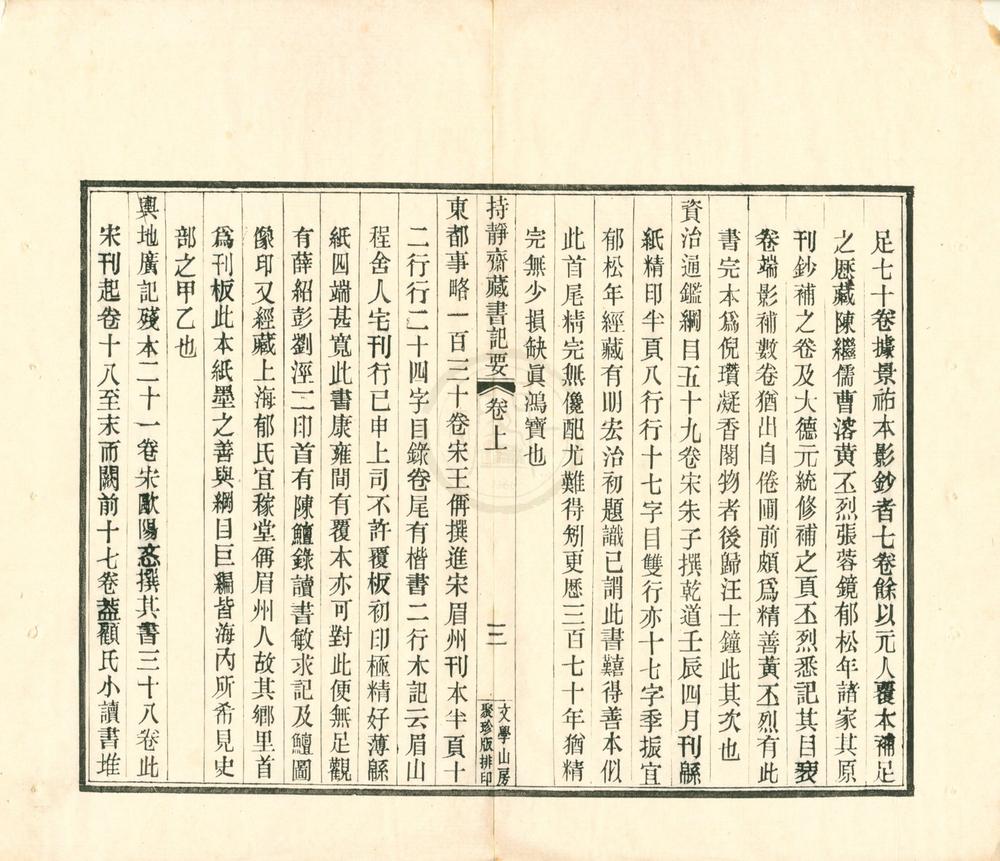 足七十卷據景祐本影鈔者七卷餘以元人覆本補足
之歴藏陳繼儒曹溶黃丕烈張蓉鏡郁松年諸家其原
刊鈔補之卷及大德元統修補之頁丕烈悉記其目裝
卷端影補數卷猶出自倦圃前頗爲精善黃丕烈有此
書完本爲倪瓚凝香閣物者後歸汪士鐘此其次也
資治通鑑綱目五十九卷宋朱子撰乾道壬辰四月刊緜
紙精印半頁八行行十七字目雙行亦十七字季振宜
郁松年經藏有明宏治初題識已謂此書囏得善本似
此首尾精完無儳配尤難得矧更歷三百七十年猶精
完無少損缺眞鴻寶也
持靜齋藏書記要
卷上
三
文學山房
聚珍版排印
東都事略一百三十卷宋王偁撰進宋眉州刊本半頁十
二行行二十四字目錄卷尾有楷書二行木記云眉山
程舍人宅刊行已申上司不許覆板初印極精好薄緜
紙四端甚寬此書康雍間有覆本亦可對此便無足觀
有薛紹彭劉涇二印首有陳鱣錄讀書敏求記及鱣圖
像印又經藏上海郁氏宜稼堂偁眉州人故其鄉里首
爲刊板此本紙墨之善與綱目巨編皆海內所希見史
部之甲乙也
輿地廣記殘本二十一卷宋歐陽忞撰其書三十八卷此
宋刊起卷十八至末而闕前十七卷葢顧氏小讀書堆